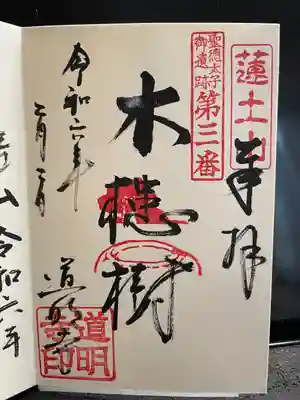 蓮土山
奉拝
聖徳太子
御遺跡
第三番
木槵樹
道明寺
道明寺印
令和六年
二月二日
山 令和六年